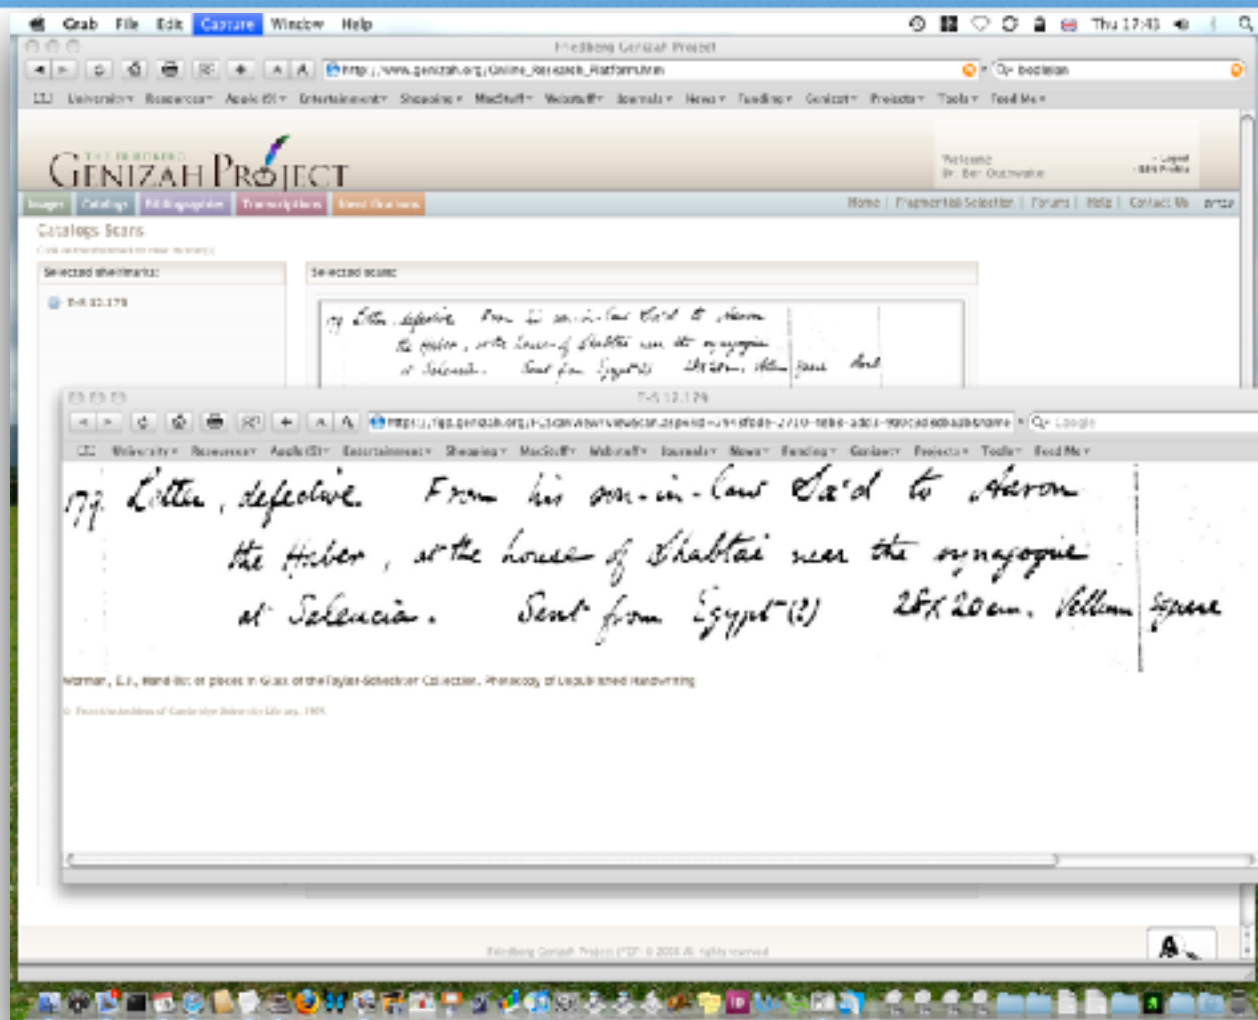 Grab File Edit Capture Window Help Thu 17:43
Friedberg Genizah Project
http://www.genizah.org/Online_Research_Platform.htm
University Resources Apple Entertainment Shopping MacStuff Webstuff Journals News Funding Genizot Projects Tools Feed Me
THE FRIEDBERG
GENIZAH PROJECT
Welcome
Dr. Ben Outhwaite
Logout
Images Catalogs Bibliographies Transcriptions Identifications
Home | Fragment(s) Selection | Forums | Help | Contact Us עברית
Catalogs Scans
Selected shelfmarks:
Selected scans:
T-S 12.179
179 Letter, defective. From his son-in-law Sa'd to Aaron
the Haber, at the house of Shabtai near the synagogue
at Seleucia. Sent from Egypt (?) 28x20cm. Vellum square
T-S 12.179
Google
University Resources Apple Entertainment Shopping MacStuff Webstuff Journals News Funding Genizot Projects Tools Feed Me
179. Letter, defective. From his son-in-law Sa'd to Aaron
the Haber, at the house of Shabtai near the synagogue
at Seleucia. Sent from Egypt (?) 28x20cm. Vellum square
Worman, E.J., Hand-list of pieces in Glass of the Taylor-Schechter Collection. Photocopy of Unpublished Handwriting
Friedberg Genizah Project (FGP) © 2008 All rights reserved